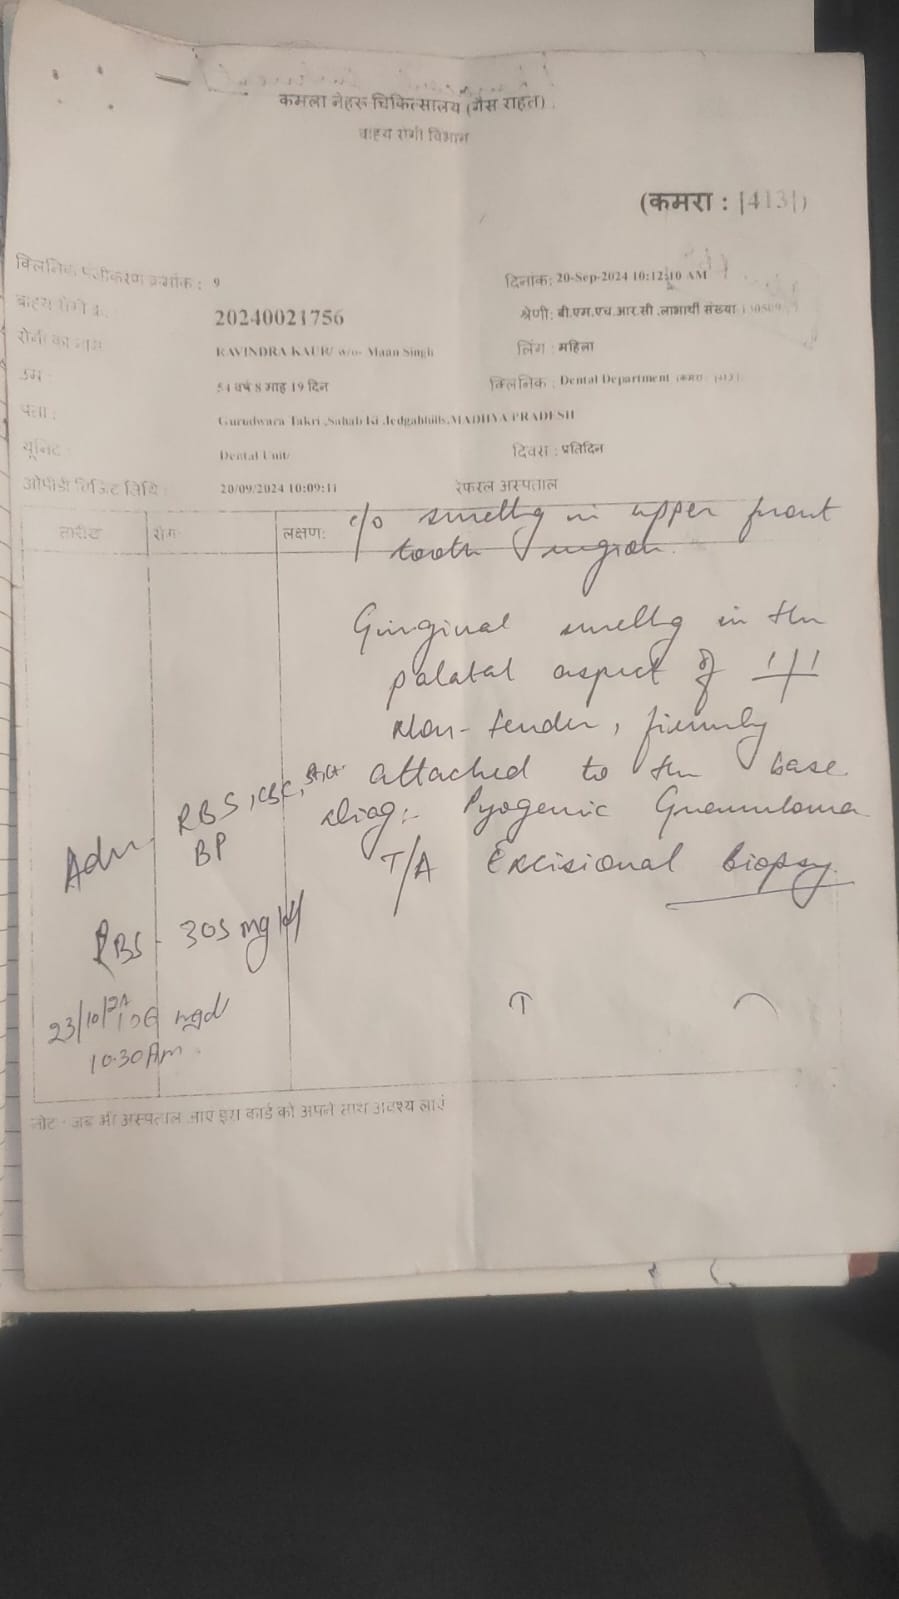 कमला नेहरू चिकित्सालय (गैस राहत)
बाह्य रोगी विभाग
(कमरा : |413|)
क्लिनिक पंजीकरण क्रमांक : 9
दिनांक: 20-Sep-2024 10:12:10 AM
बाह्य रोगी क्र. : 20240021756
श्रेणी: बी.एम.एच.आर.सी .लाभार्थी संख्या :
रोगी का नाम RAVINDRA KAUR/ w/o- Maan Singh
लिंग : महिला
उम्र : 54 वर्ष 8 माह 19 दिन
क्लिनिक : Dental Department (कमरा: |413|)
पता : Gurudwara Takri ,Sahab ki Jedgahhills,MADHYA PRADESH
यूनिट: Dental Unit/
दिवस : प्रतिदिन
ओपीडी विजिट तिथि : 20/09/2024 10:09:11
रेफरल अस्पताल
तारीख रोग लक्षण:
c/o swellg in upper front
tooth region.
Gingival swellg in the
palatal aspect of 1/1
Non-tender, firmly
attached to the base
Diag:- Pyogenic Granuloma
T/A Excisional biopsy
Adv RBS, CBC, BT, CT
BP
RBS - 305 mg/dl
23/10/24 mgdl
10.30 Am
नोट : जब भी अस्पताल आए इस कार्ड को अपने साथ अवश्य लाएं